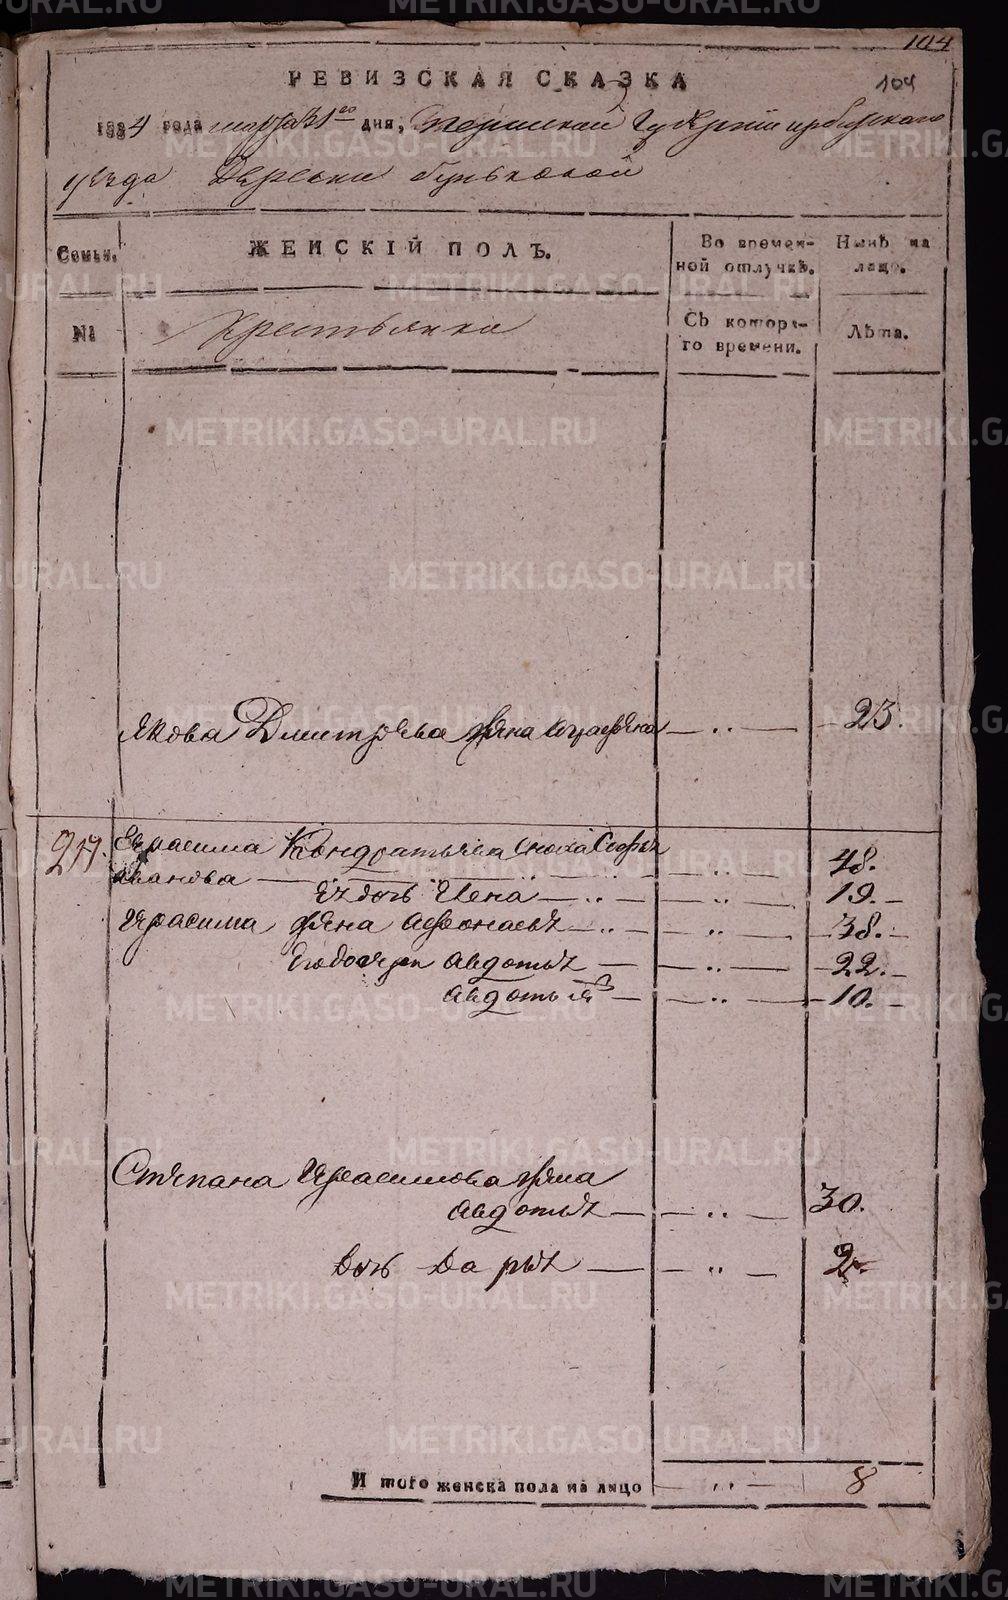 104
РЕВИЗСКАЯ СКАЗКА
104
1834 года марта 31го дня, Пермской Губернии ирбитскаго
уезда Деревни буньковой
Семьи.
ЖЕНСКІЙ ПОЛЪ.
Во времен-
ной отлучкѣ.
Нынѣ на
лицо.
№
Крестьянка
Съ котора-
го времени.
Лѣта.
Якова Дмитрѣева жена 23.
Герасима Кондратьева сноха Софья
Иванова 48.
Ея дочь Елена 19.
Герасима жена Афонасья 38.
Его дочери Авдотья 22.
Авдотья 10.
Степана Герасимова жена
Авдотья 30.
Дочь Дарья 2.
И того женска пола на лицо 8
METRIKI.GASO-URAL.RU